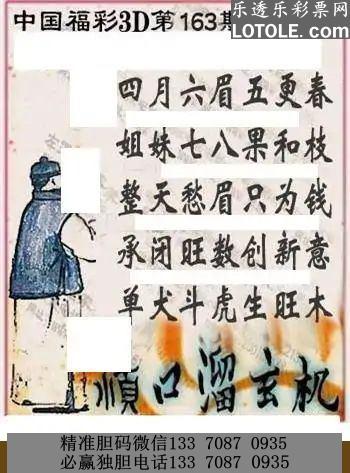 乐透乐彩票网
WWW.LOTOLE.COM
中国福彩3D第163期
四月六眉五更春
姐妹七八果和枝
整天愁眉只为钱
承闭旺数创新意
单犬斗虎生旺木
顺口溜玄机
精准胆码微信133 7087 0935
必赢独胆电话133 7087 0935